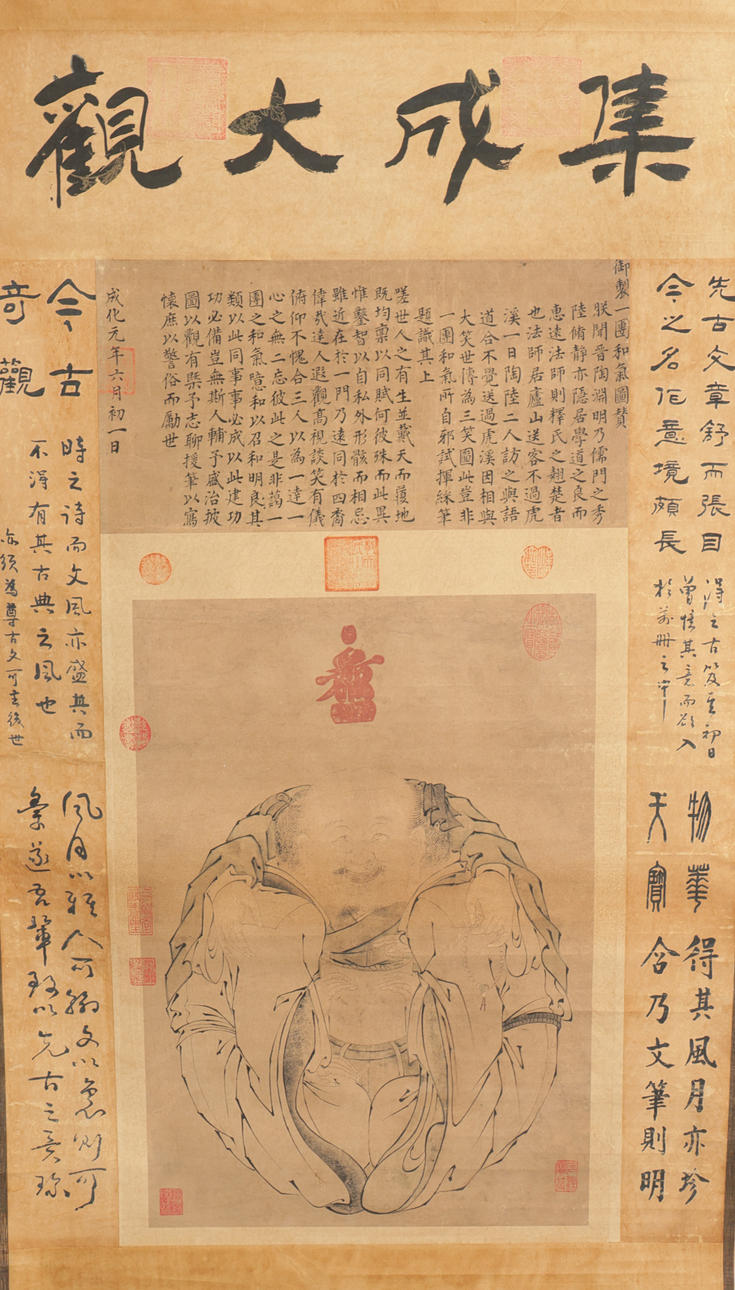 集成大觀
先古文章舒而張目
今之名作意境頗長
於前冊之中
物華
天寶
得其風月亦珍
含乃文筆則明
御製一團和氣圖贊
朕聞晉陶淵明乃儒門之秀
陸脩靜亦隱居學道之良而
惠遠法師則釋氏之翹楚者
也法師居廬山送客不過虎
溪一日陶陸二人訪之與語
道合不覺送過虎溪因相與
大笑世傳為三笑圖此豈非
一團和氣所自邪試揮綵筆
題識其上
嗟世人之有生並戴天而履地
既均稟以同賦何彼殊而此異
惟鑿智以自私外形骸而相忌
雖近在於一門乃遠同於四裔
偉哉達人遐觀高視談笑有儀
俯仰不愧合三人以為一達一
心之無二忘彼此之是非藹一
團之和氣噫和以召和明良其
類以此同事事必成以此建功
功必備豈無斯人輔予盛治披
圖以觀有槩予志聊援筆以寫
懷庶以警俗而勵世
成化元年六月初一日
今古
奇觀
時之詩而文風亦盛其而
不得有其古典之風也
亦須為尊古文可主後世
風月以雅人可文以意則可
象遂吾輩致以先古之意珍